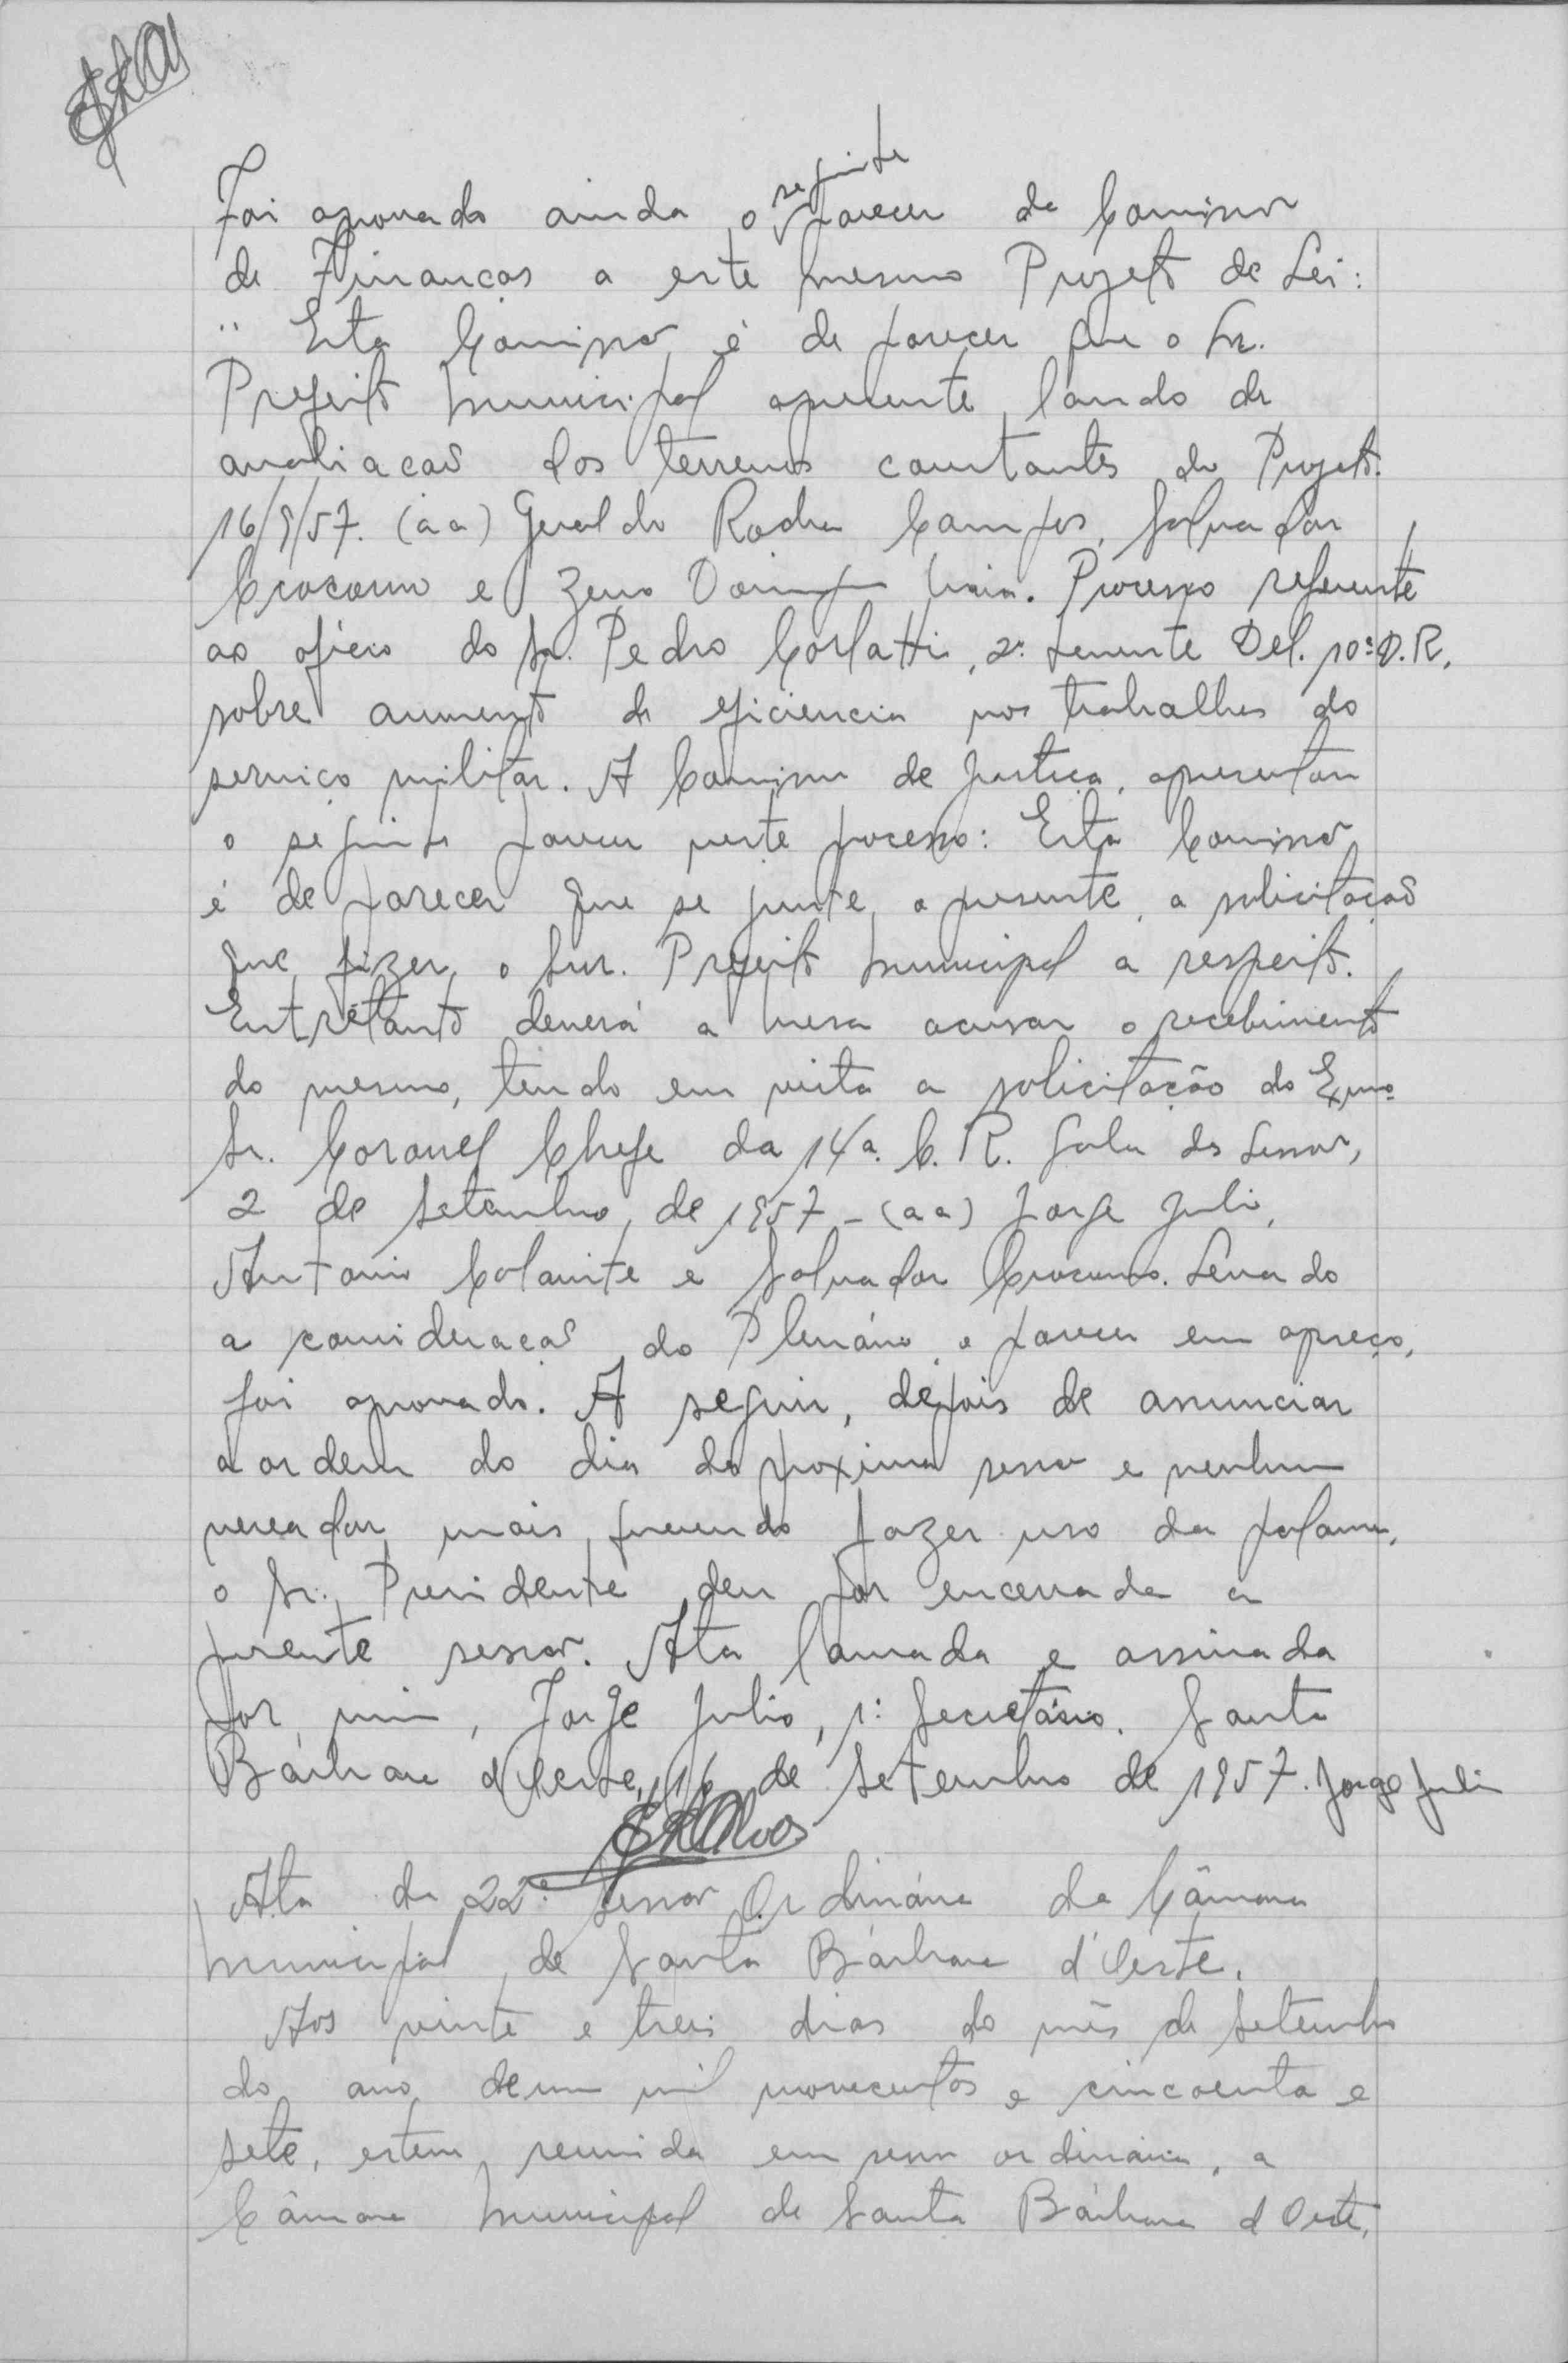 seguinte
Foi aprovado ainda o parecer da Comissão
de Finanças a este mesmo Projeto de Lei:
" Esta Comissão é de parecer que o Sr.
Prefeito Municipal apresente laudo de
avaliação dos terrenos constantes do Projeto.
16/9/57. (aa) Geraldo Rocha Campos, Salvador
Crocomo e Zeno Maia. Processo referente
ao ofício do Sr. Pedro 2º tenente Del. 10ª D.R.
sobre aumento de eficiencia nos trabalhos do
serviço militar. A Comissão de Justiça, apresentou
o seguinte parecer neste processo: Esta Comissão
é de parecer que se junte, a presente, a solicitação
que fizer, o Snr. Prefeito Municipal a respeito.
Entretanto deverá a mesa acusar o recebimento
do mesmo, tendo em vista a solicitação do Exmo
Sr. Coronel Chefe da 14ª. C. R. Sala das Sessões,
2 de Setembro, de 1957 - (aa) Jorge Julio,
Antonio Colamite e Salvador Crocomo. Levado
a consideração do Plenário o parecer em apreço,
foi aprovado. A seguir, depois de anunciar
a ordem do dia da proxima sessão e nenhum
vereador mais querendo fazer uso da palavra,
o Sr. Presidente deu por encerrada a
presente sessão. Ata lavrada e assinada
por mim, Jorge Julio, 1º Secretário. Santa
Bárbara d'Oeste, 16 de Setembro de 1957. Jorge Julio
Ata da 22ª Sessão Ordinária da Câmara
Municipal de Santa Bárbara d'Oeste.
Aos vinte e treis dias do mês de Setembro
do ano de um mil novecentos e cincoenta e
sete, esteve reunida em sessão ordinária, a
Câmara Municipal de Santa Bárbara d'Oeste,